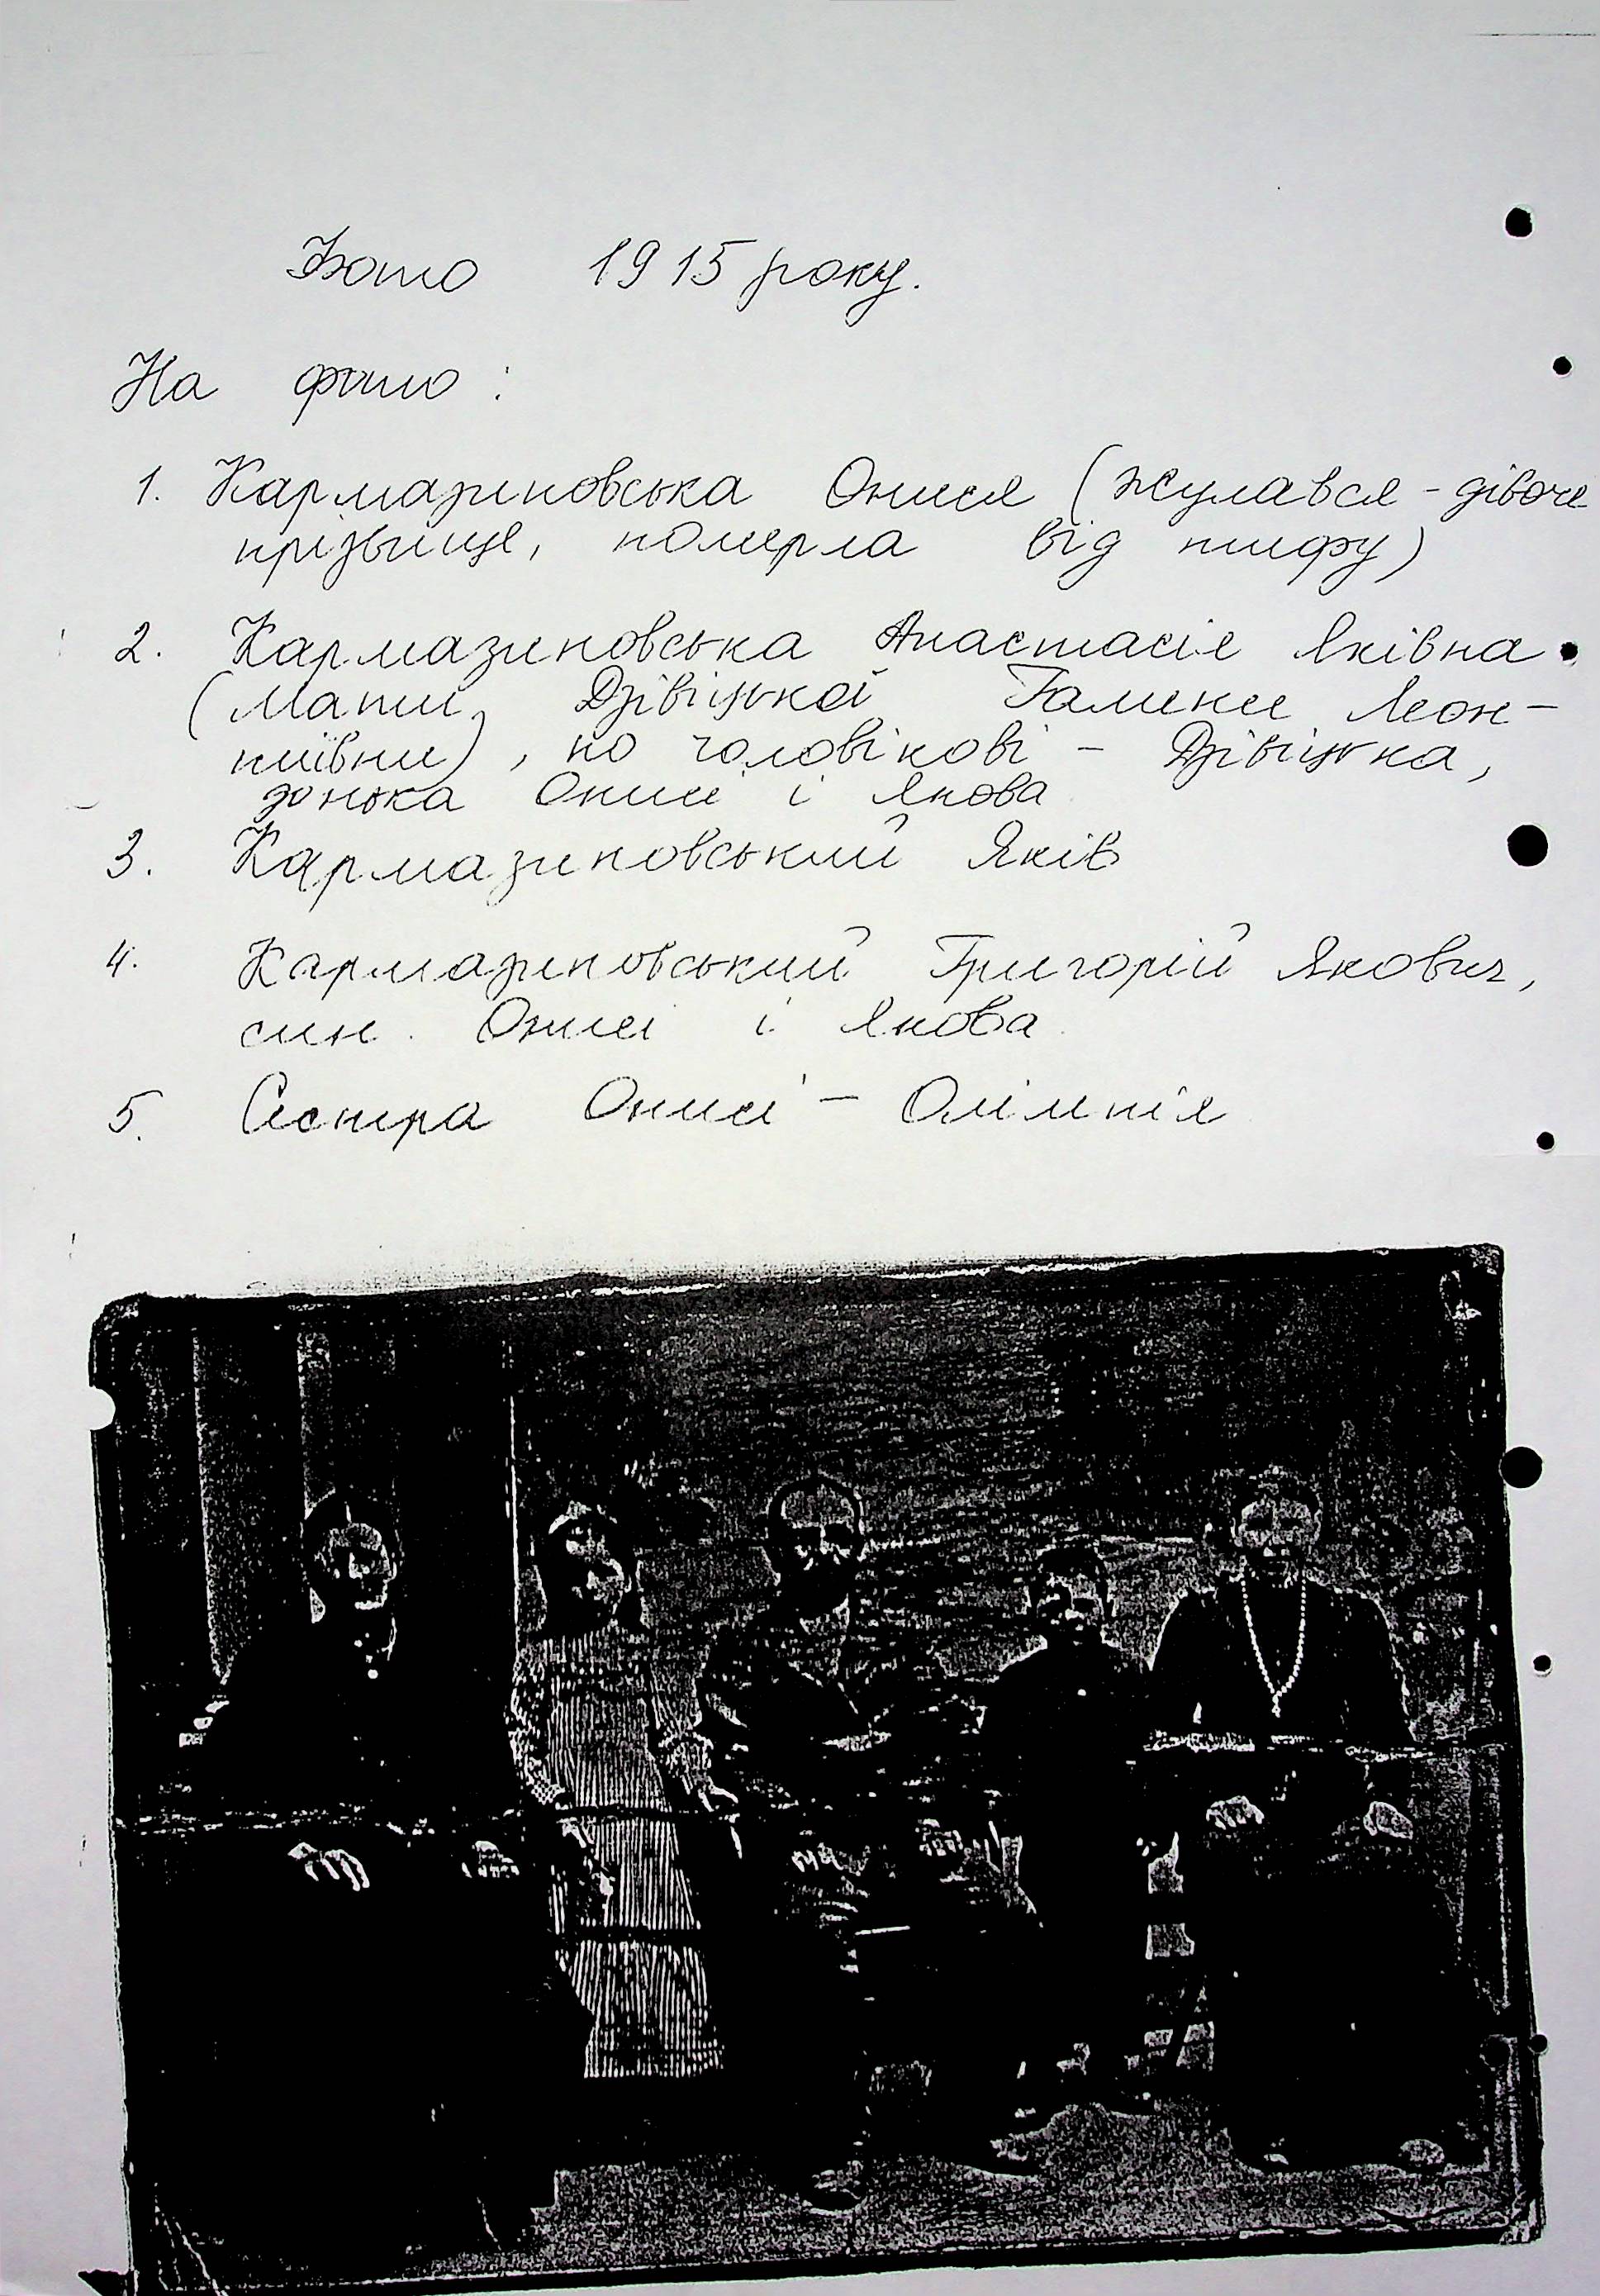 Фото 1915 року.
На фото:
1. Кармазиновська Онися (Жулався - дівоче
прізвище, померла від тифу)
2. Кармазиновська Анастасія Яківна
(мати Дзівіцької Галини Леон-
тиївни), по чоловікові - Дзівіцька,
донька Онисі і Якова
3. Кармазиновський Яків
4. Кармазиновський Григорій Якович,
син Онисі і Якова
5. Сестра Онисі - Олімпія